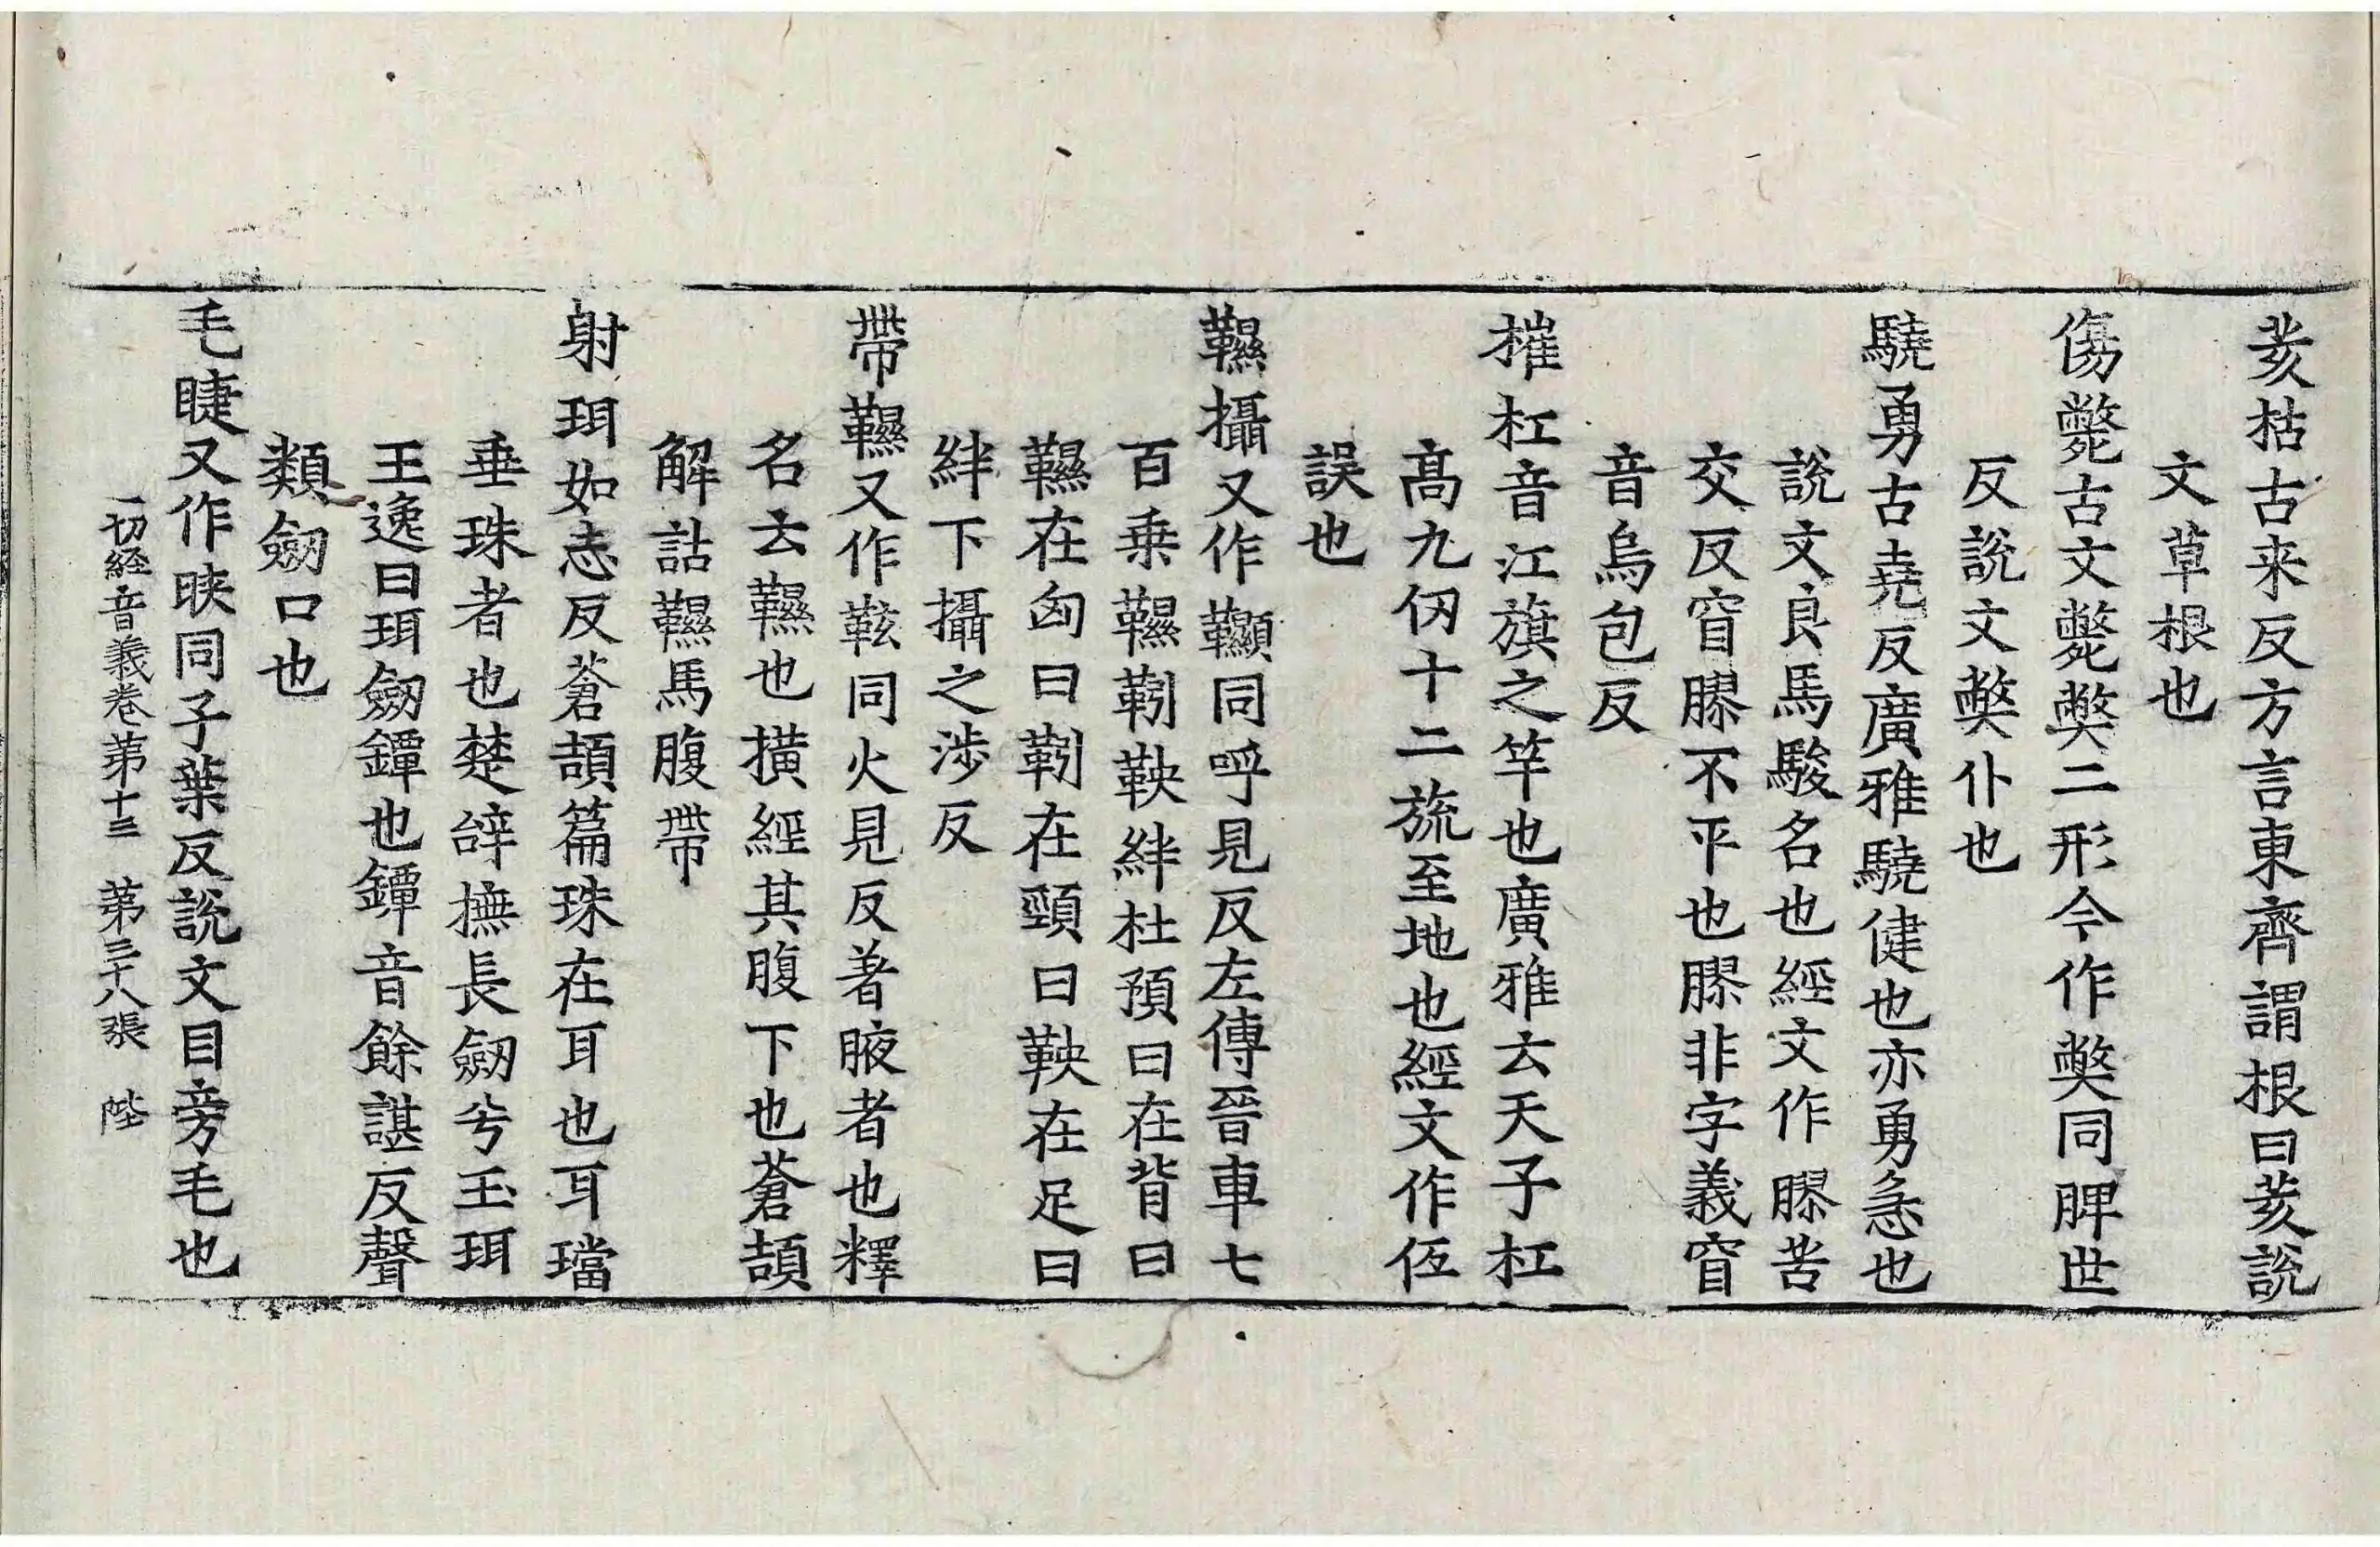 荄枯古来反方言東齊謂根曰荄說
文草根也
傷斃古文斃獘二形今作獘同脾世
反說文獘仆也
驍勇古堯反廣雅驍健也亦勇急也
說文良馬駿名也經文作膠苦
交反窅膠不平也膠非字義窅
音烏包反
摧杠音江旗之竿也廣雅云天子杠
高九仞十二旒至地也經文作仾
誤也
韅攝又作韅同呼見反左傳晉車七
百乗韅靷鞅絆杜預曰在背曰
韅在匈曰靷在頸曰鞅在足曰
絆下攝之涉反
帶韅又作䩙同火見反著腋者也釋
名云韅也橫經其腹下也蒼頡
解詁韅馬腹帶
射珥如志反蒼頡篇珠在耳也耳璫
垂珠者也楚辝撫長劒兮玉珥
王逸曰珥劒鐔也鐔音餘諶反聲
類劒口也
毛睫又作䀹同子葉反說文目旁毛也
一切經音義卷苐十三 苐三十八張 陛